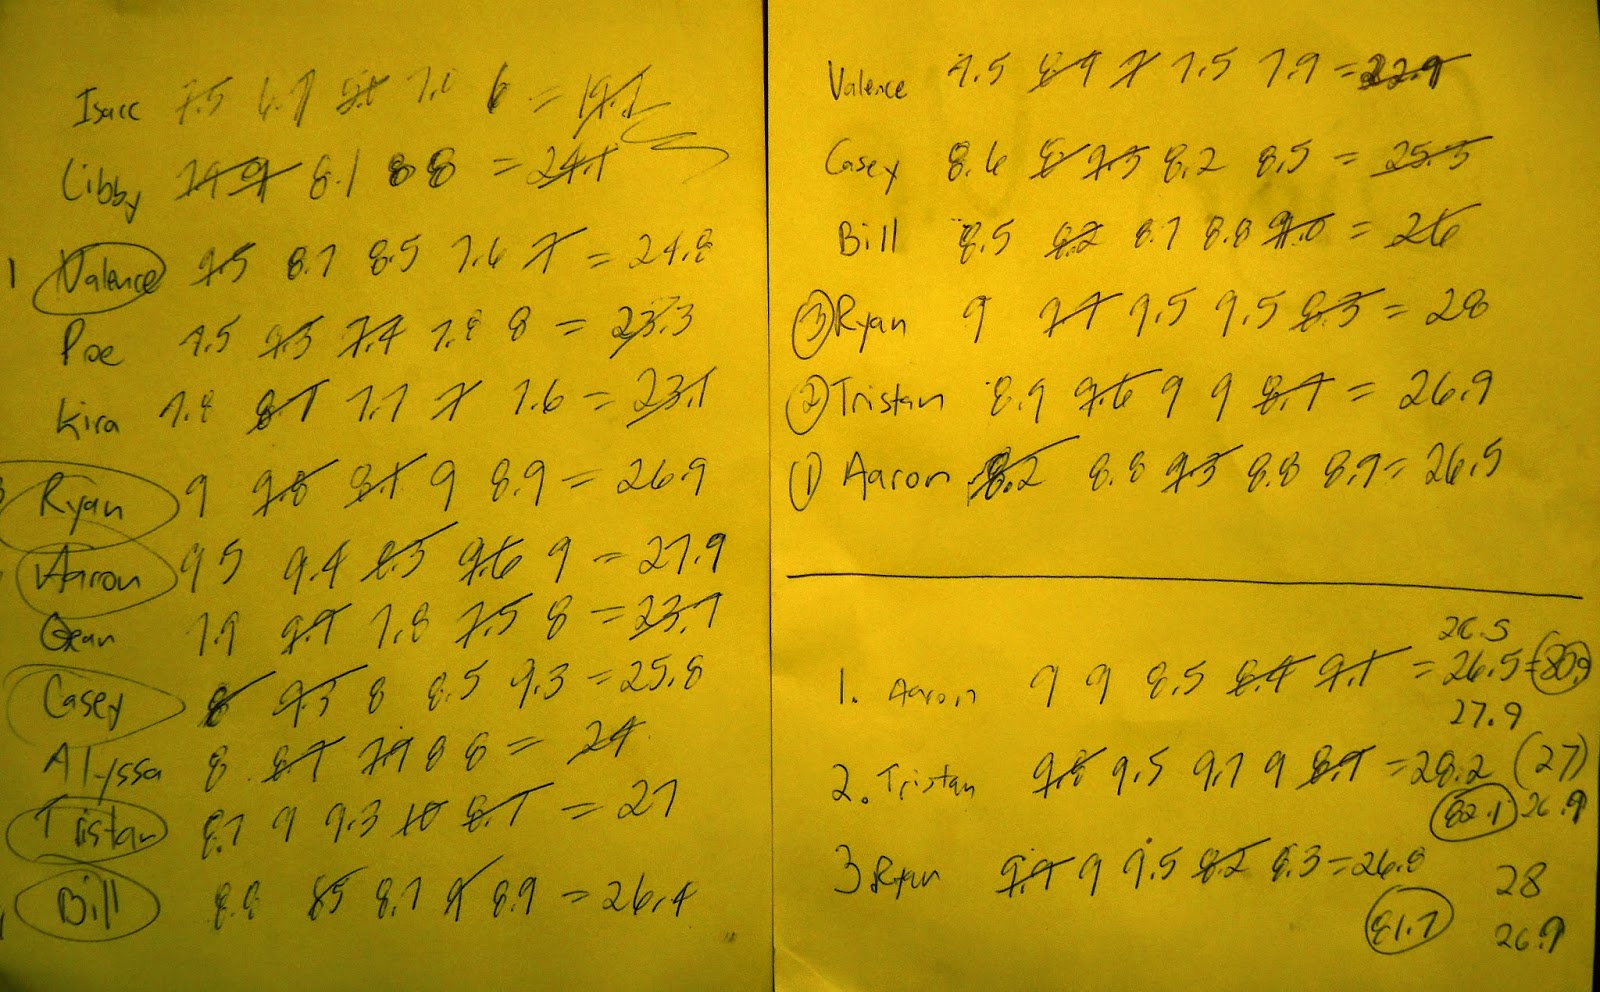 Isacc 7.5 6 =
Libby 8.1 8 8 = 24.1
1 Valence 9.5 8.7 8.5 7.6 7 = 24.8
Poe 7.5 7.4 7.8 8 = 23.3
Kira 7.8 8.7 7.7 7 7.6 = 23.1
Ryan 9 9.8 8.7 9 8.9 = 26.9
Aaron 9 5 9.4 8.5 9.6 9 = 27.9
Gean 7.9 9.9 7.8 7.5 8 = 23.7
Casey 8 9.5 8 8.5 9.3 = 25.8
Alyssa 8 8.7 7.9 8 8 = 24
Tristan 8.7 9 9.3 10 8.7 = 27
Bill 8.8 85 8.7 9 8.9 = 26.4
Valence 7.5 8.9 7 7.5 7.9 = 22.9
Casey 8.6 8 9.3 8.2 8.5 = 25.3
Bill 8.5 8.2 8.7 8.8 9.0 = 26
3 Ryan 9 9.7 9.5 9.5 8.3 = 28
2 Tristan 8.9 9.6 9 9 8.7 = 26.9
1 Aaron 8.2 8.8 9.3 8.8 8.9 = 26.5
26.5
1. Aaron 9 9 8.5 8.4 9.1 = 26.5 = 80.9
27.9
2. Tristan 9.8 9.5 9.7 9 8.9 = 28.2 (27)
82.1 26.9
3 Ryan 9.9 9 9.5 8.2 8.3 = 26.8
28
81.7 26.9